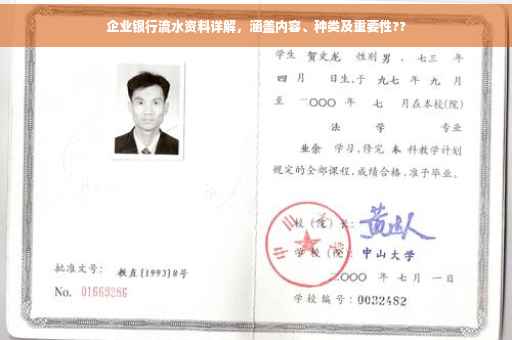 企业银行流水资料详解，涵盖内容、种类及重要性??
学生 贺文龙 性别 男 ，七三 年
四 月 日生，于 九七 年 九 月
至 二〇〇〇 年 七 月在本校(院)
法 学 专业
业余 学习，修完 本 科教学计划
规定的全部课程，成绩合格，准予毕业。
校(院)长：
学 校(院)： 中山大学
二〇〇〇 年 七 月 一 日
批准文号： 教直[1993]8号
No. 01663286
学校编号：0032482